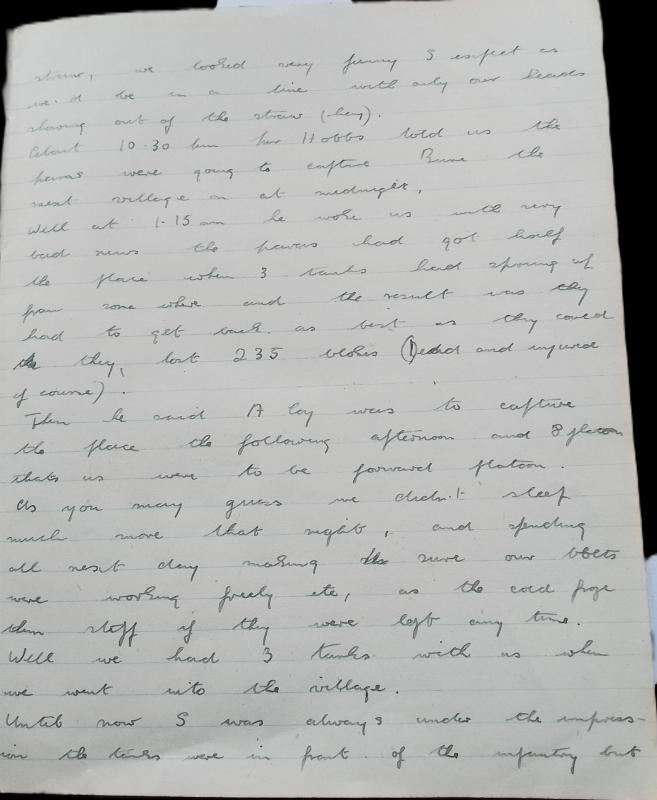 straw, we looked very funny I expect as
we'd be in a line with only our heads
showing out of the straw (hay).
About 10.30 Hobbs told us the
paras were going to capture Bure the
next village on at midnight,
Well at 1.15 am he woke us with very
bad news the paras had got half
the place when 3 tanks had sprung up
from some where and the result was they
had to get back as best as they could
they, lost 235 blokes (Dead and injured
of course).
Then he said A Coy was to capture
the place the following afternoon and 8 platoon
thats us were to be forward platoon.
As you may guess we didn't sleep
much more that night, and spending
all next day making sure our bolts
were working freely etc, as the cold froze
them stiff if they were left any time.
Well we had 3 tanks with us when
we went into the village.
Until now I was always under the impress-
ion the tanks were in front of the infantry but